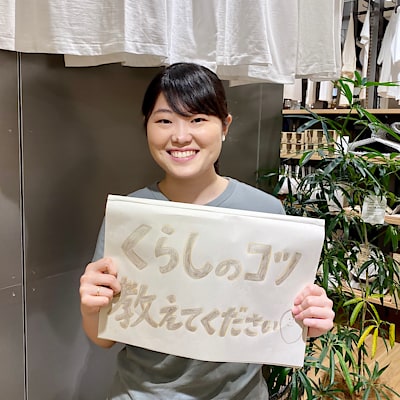 くらしのコツ
教えてください